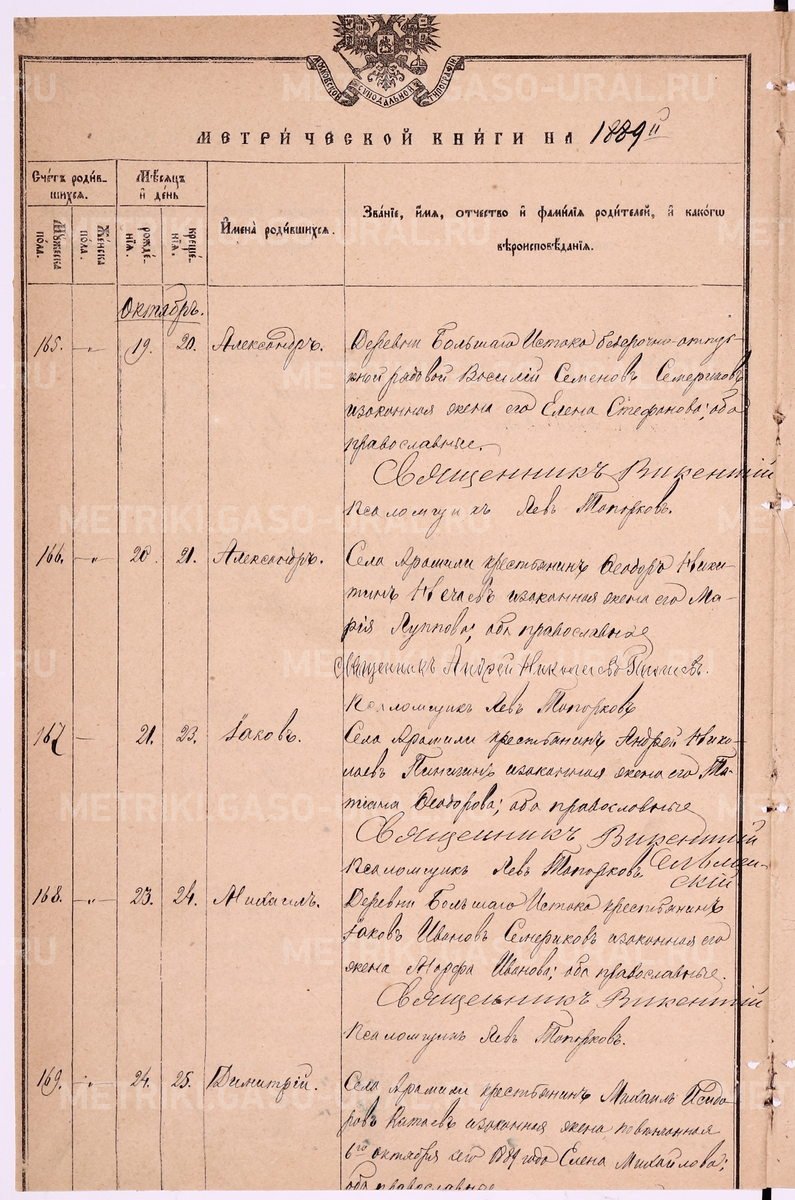 МОСКОВСКОЙ СѴНОДАЛЬНОЙ ТИПОГРАФІИ
МЕТРИ́ЧЕСКОЙ КНИ́ГИ НА 1889 ГГ
Сче́тъ роди́в-
шихся.
Мѣ́сяцъ
и҆ де́нь
И҆мена̀ роди́вшихся.
Зва́нїе, и҆́мя, ѻ҆́тчество и҆ фами́лїя роди́телей, и҆ како́гѡ
вѣроисповѣ́данїя.
Му́жеска
по́ла.
Же́нска
по́ла.
рожде́-
нїя.
креще́-
нїя.
Октябрь.
165. -„- 19. 20. Александръ. Деревни Большаго Истока безсрочно-отпус-
кной рядовой Василій Семеновъ Семериковъ
и законная жена его Елена Стефанова; оба
православные.
Священникъ Викентій
Псаломщикъ Левъ Топорковъ.
166. -„- 20. 21. Александръ. Села Арамили крестьянинъ Ѳеодоръ Ники-
тинъ Нечаевъ и законная жена его Ма-
рія Луппова; оба православные
Священникъ Андрей Николаевъ
Псаломщикъ Левъ Топорковъ
167 — 21. 23. Іаковъ. Села Арамили крестьянинъ Андрей Нико-
лаевъ Пинигинъ и законная жена его Та-
тіана Ѳеодорова; оба православные
Священникъ Викентій
Псаломщикъ Левъ Топорковъ Сельмен-
скій
168. -„- 23. 24. Михаилъ. Деревни Большаго Истока крестьянинъ
Іаковъ Ивановъ Семериковъ и законная его
жена Марфа Иванова; оба православные.
Священникъ Викентій
Псаломщикъ Левъ Топорковъ.
169. -„- 24. 25. Димитрій. Села Арамили крестьянинъ Михаилъ Исидо-
ровъ Катаевъ и законная жена
6го октября сего 1889 года Елена Михайлова;
оба православные
METRIKI.GASO-URAL.RU